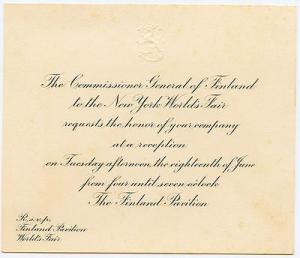 The Commissioner General of Finland
to the New York World's Fair
requests the honor of your company
at a reception
on Tuesday afternoon, the eighteenth of June
from four until seven o'clock
The Finland Pavilion
R.s.v.p.
Finland Pavilion
World's Fair